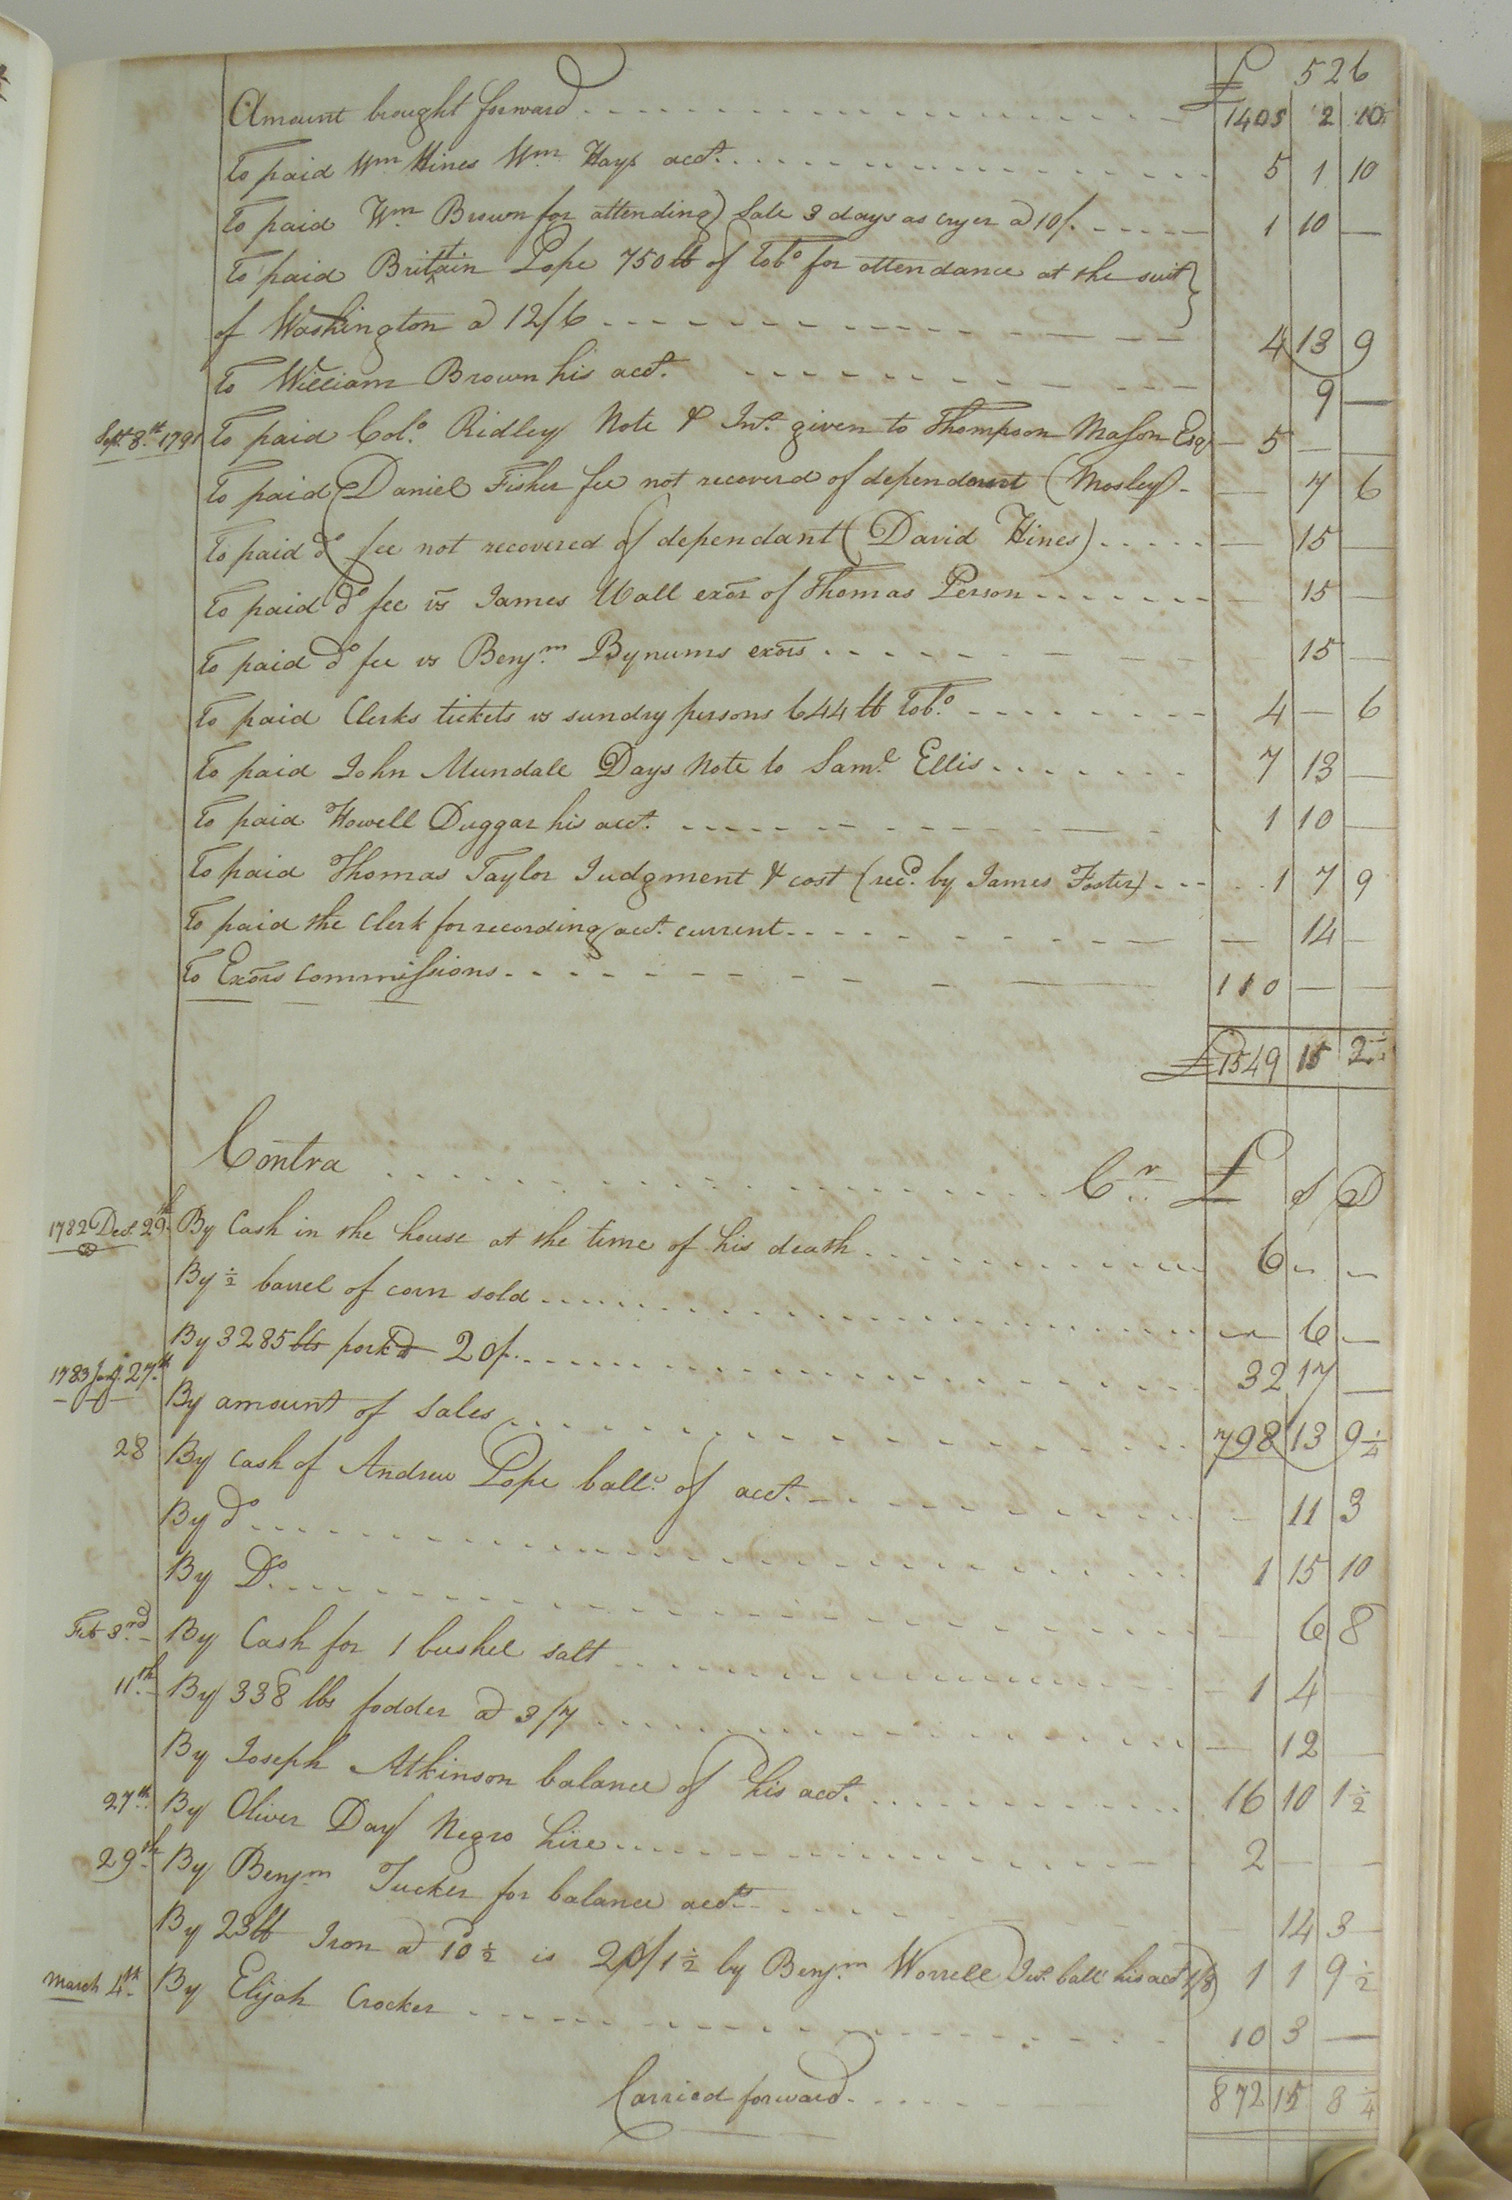 £ 526
Amount brought forward 1405 2 10
To paid Wm Hines Wm Hays acct. 5 1 10
To paid Wm Brown for attending Sale 3 days as cryer a 10/. 1 10 —
To paid Brittain Pope 750 lb of Tobo for attendance at the suit
of Washington a 12/6 4 13 9
To William Brown his acct. 9 —
Sept. 8th 1791 To paid Colo. Ridley Note & Int. given to Thompson Mason Esqr — 5 — —
To paid Daniel Fisher fee not recoverd of dependant (Mosley) — 7 6
To paid do fee not recovered of dependant (David Hines) — 15 —
To paid do fee vs James Wall exor of Thomas Person — 15 —
To paid do fee vs Benjm Bynums exors 15 —
To paid Clerks tickets vs sundry persons 644 lb Tobo 4 — 6
To paid John Mundall Days Note to Saml Ellis 7 13 —
To paid Howell Duggar his acct. 1 10 —
To paid Thomas Taylor Judgment & cost (recd. by James Foster) 1 7 9
To paid the Clerk for recording acct. current — 14 —
To Exors Commissions 110 — —
£1549 15 2
Contra Cr £ S D
1782 Dec. 29th By Cash in the house at the time of his death 6 — —
By ½ barrel of corn sold — 6 —
By 3285 lbs pork a 20/. 32 17 —
1783 Jany. 27th By amount of Sales 798 13 9¼
28 By Cash of Andrew Pope ballc. of acct. 11 3
By do 1 15 10
By Do. 6 8
Feb 3rd By Cash for 1 bushel salt 1 4 —
11th By 338 lbs fodder a 3/7 — 12 —
By Joseph Atkinson balance of his acct. 16 10 1½
27th By Oliver Day Negro hire 2 — —
29th By Benjm Tucker for balance acct. 14 3
By 23 lb Iron a 10½ is 20/1½ by Benjm Worrell ball his acct 1/8 1 1 9½
March 4th By Elijah Crocker 10 3 —
Carried forward 872 15 8¼